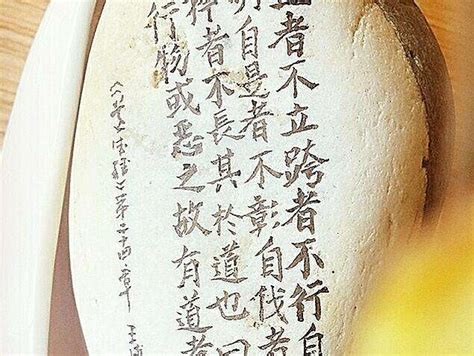 者不立跨者不行自
明自是者不彰自伐者
矜者不長其於道也曰
行物或惡之故有道者
《道德经》第二十四章 王